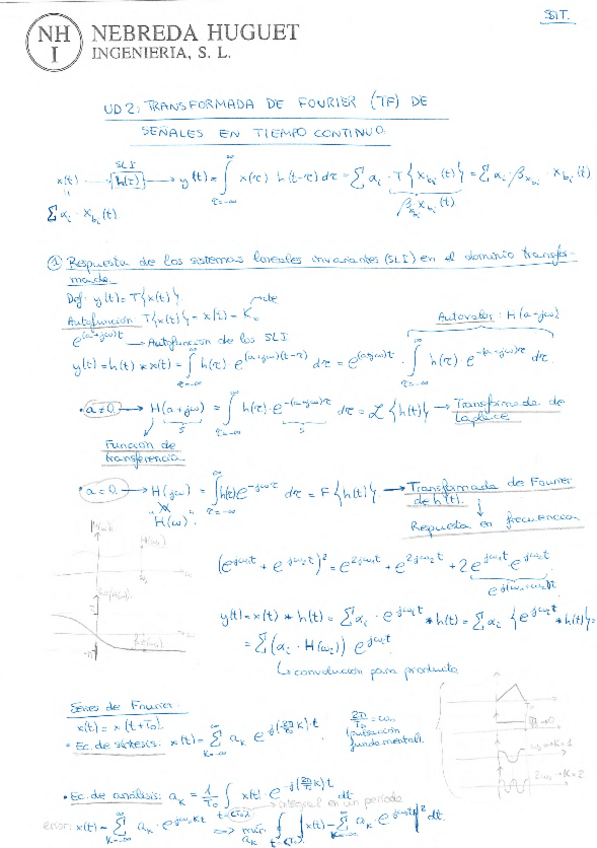 SIT.
NHI
NEBREDA HUGUET
INGENIERIA, S. L.
UD2: TRANSFORMADA DE FOURIER (TF) DE
SEÑALES EN TIEMPO CONTINUO.
SLI
x(t) → [h(t)] → y(t) = ∫_{τ=-∞}^{∞} x(τ) h(t-τ) dτ = Σ α_i · T{x_{b_i}(t)} = Σ α_i · β_{x_{b_i}} · x_{b_i}(t)
Σ α_i · x_{b_i}(t)
① Respuesta de los sistemas lineales invariantes (SLI) en el dominio transfor-
mado
Def: y(t) = T{x(t)}
Autofunción: T{x(t)} = x(t) · K → cte
e^{(a+jω)t} → Autofunción de los SLI
Autovalor: H(a+jω)
y(t) = h(t) * x(t) = ∫_{τ=-∞}^{∞} h(τ) e^{(a+jω)(t-τ)} dτ = e^{(a+jω)t} · ∫_{τ=-∞}^{∞} h(τ) e^{-(a+jω)τ} dτ.
• a≠0 → H(a+jω) = ∫_{τ=-∞}^{∞} h(τ) · e^{-(a+jω)τ} dτ = L{h(t)} → Transformada de
Laplace
s s
Función de
transferencia
• a=0 → H(jω) = ∫_{τ=-∞}^{∞} h(τ) e^{-jωτ} dτ = F{h(t)}. → Transformada de Fourier
de h(t).
"H(ω)".
Respuesta en frecuencia
(e^{jω₁t} + e^{jω₂t})² = e^{2jω₁t} + e^{2jω₂t} + 2 e^{jω₁t} e^{jω₂t}
e^{j(ω₁+ω₂)t}
y(t) = x(t) * h(t) = Σ α_i · e^{jω_i t} * h(t) = Σ α_i {e^{jω_i t} * h(t)} =
= Σ (α_i · H(ω_i)) e^{jω_i t}
↳ convolución pasa producto
Series de Fourier:
x(t) = x(t+T₀)
• Ec. de síntesis: x(t) = Σ_{K=-∞}^{∞} a_K e^{j(2π/T₀ K)·t}
2π/T₀ = ω₀
(pulsación
fundamental).
• Ec. de análisis: a_K = 1/T₀ ∫_{t=<T₀>} x(t) · e^{-j(2π/T₀ K)t} dt
→ integral en un periodo
error: x(t) - Σ_{K=-∞}^{∞} a_K · e^{jω₀Kt} => min_{a_K} ∫_{t=<T₀>} |x(t) - Σ a_K · e^{jω₀Kt}|² dt.